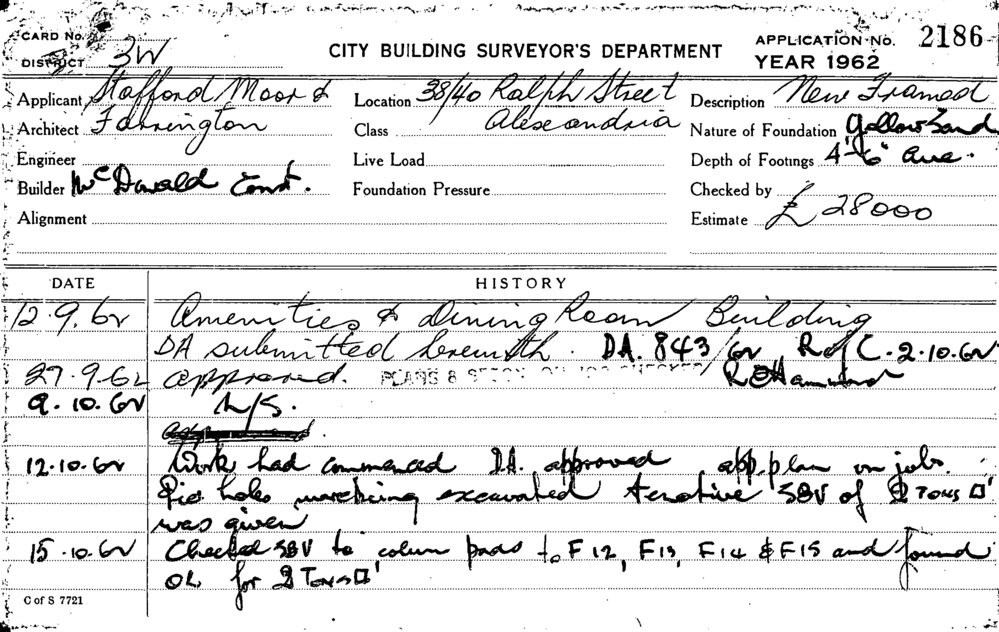 CARD No.
DISTRICT 3W
CITY BUILDING SURVEYOR'S DEPARTMENT
APPLICATION No. 2186
YEAR 1962
Applicant Stafford Moor &
Location 38/40 Ralph Street
Description New Framed
Architect Farrington
Class Alexandria
Nature of Foundation Yellow Sand
Engineer
Live Load
Depth of Footings 4'-6" ave.
Builder McDonald Const.
Foundation Pressure
Checked by
Alignment
Estimate £ 28000
DATE HISTORY
12.9.62 Amenities & Dining Room Building
DA submitted herewith. DA. 843/62 R of C. 2.10.62
27.9.62 approved. PLANS & CHECKED
9.10.62 N/S.
approved.
12.10.62 Work had commenced DA. approved app. plan on job.
Pie holes excavated SBV of 2 Tons □'
was given
15.10.62 Checked SBV to column pads to F12, F13, F14 & F15 and found
OK for 2 Tons □'
C of S 7721